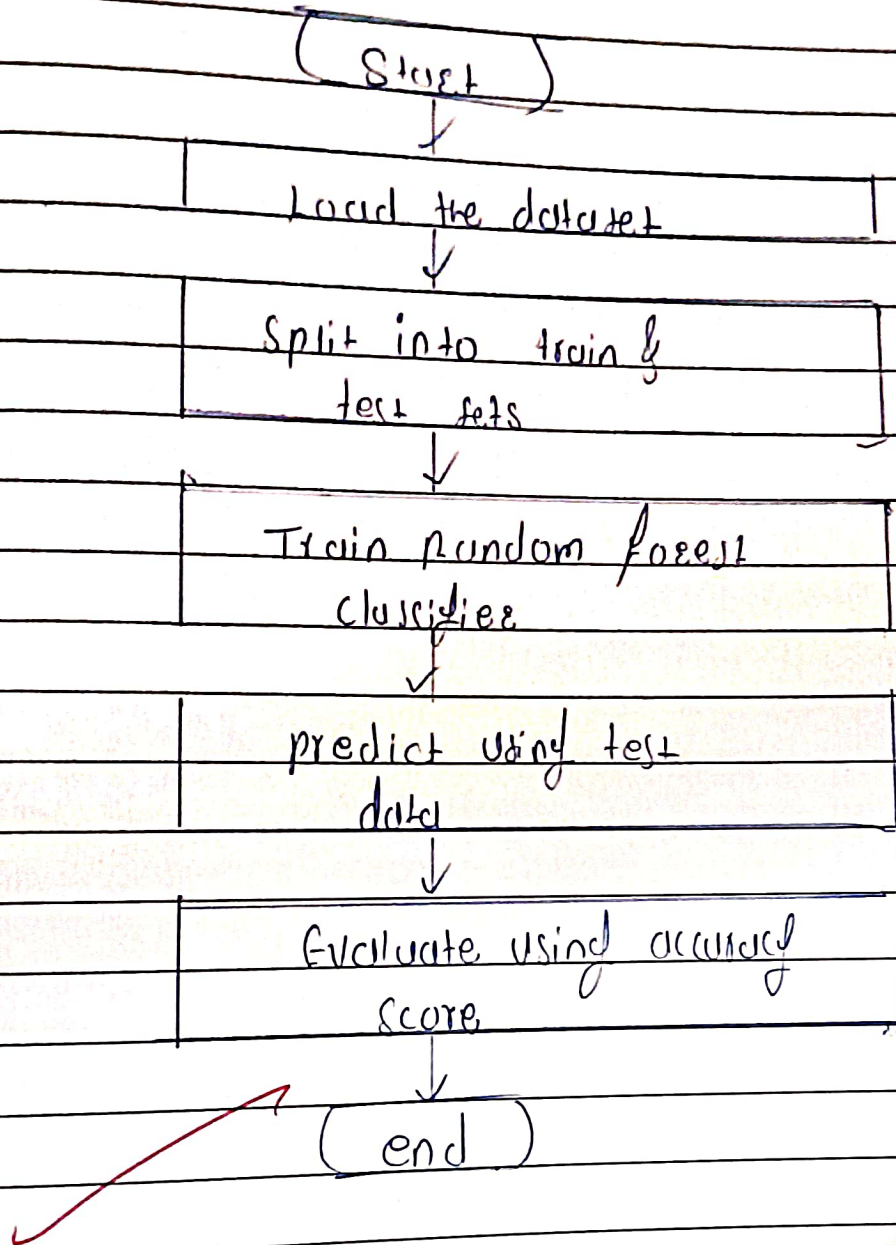 Start
Load the dataset
Split into train &
test sets
Train Random forest
classifier
predict using test
data
Evaluate using accuracy
score
end